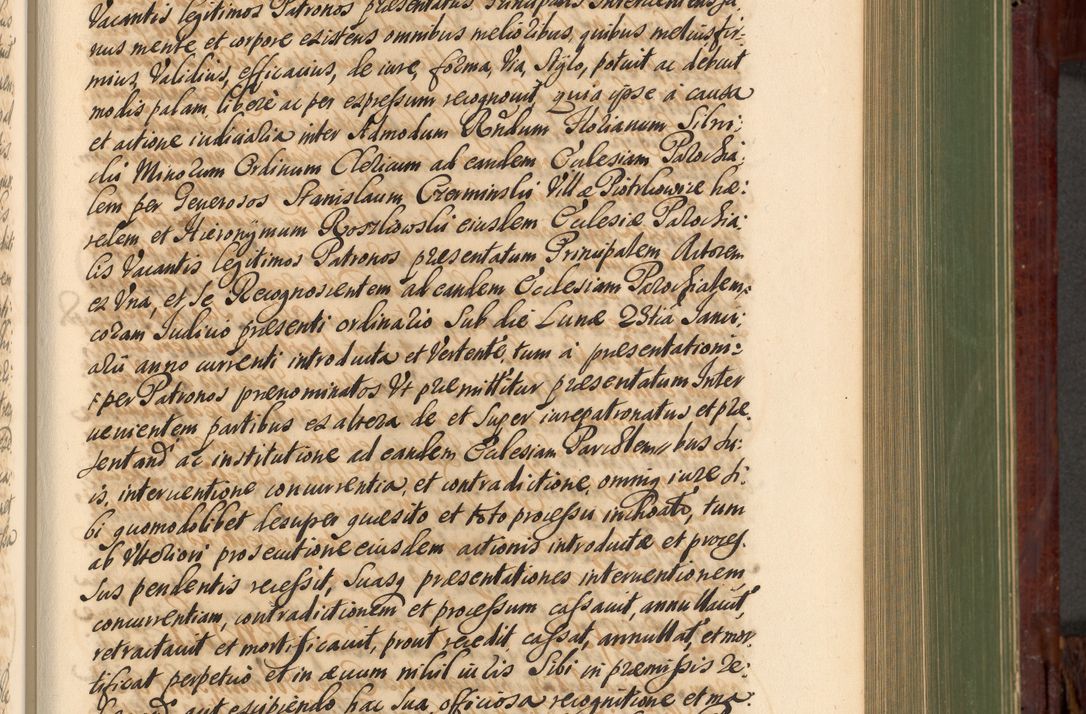 Vacantis legitimos Patronos præsentatus, Principalis Interveniens sa,
nus mente et corpore existens omnibus melioribus, quibus melius fir:
mius, Validius, efficacius, de iure, forma, Via, Stylo, potuit ac debuit
modis palam, liberè ac per expressum recognouit, quia ipse à causa
et actione iudicialia inter Admodum Rndum Florianum Silni:
clii Minorum Ordinum Clericum ad eandem Ecclesiam Parochia:
lem per Generosos Stanislaum Czerminski Villæ Piotrkowice hæ:
redem et Hieronymum Roszkowski eiusdem Ecclesiæ Parochia:
lis Vacantis legitimos Patronos præsentatum Principalem Actorem
ex Vna, et, se Recognoscentem ad eandem Ecclesiam Parochialem,
coram Iudicio præsenti ordinario Sub die Lunæ 23tia Janu:
arii anno currenti introducta et Vertente, tum à præsentationi:
per Patronos prænominatos Vt præmittitur præsentatum Inter
uenientem partibus ex altera de et super iurepatronatus et præ
sentand ac institutione ad eandem Ecclesiam Parochlem, bus su:
is, interuentione concurrentia, et contradictione, omniq iure si:
bi quomodolibet desuper quæsito et toto processu inchoato, tum
ab Vlteriori prosecutione eiusdem actionis introductæ et proces
sus pendentis recessit, Suasq præsentationes interuentionem
concurrentiam, contradictionem et processum cassauit, annullauit,
retractauit et mortificauit, prout recedit, cassat, annullat, et mor
tificat perpetuò et in æuum nihil iuris Sibi in præmissis re:
aut excipiendo hac Sua officiosa recognitione et ma: